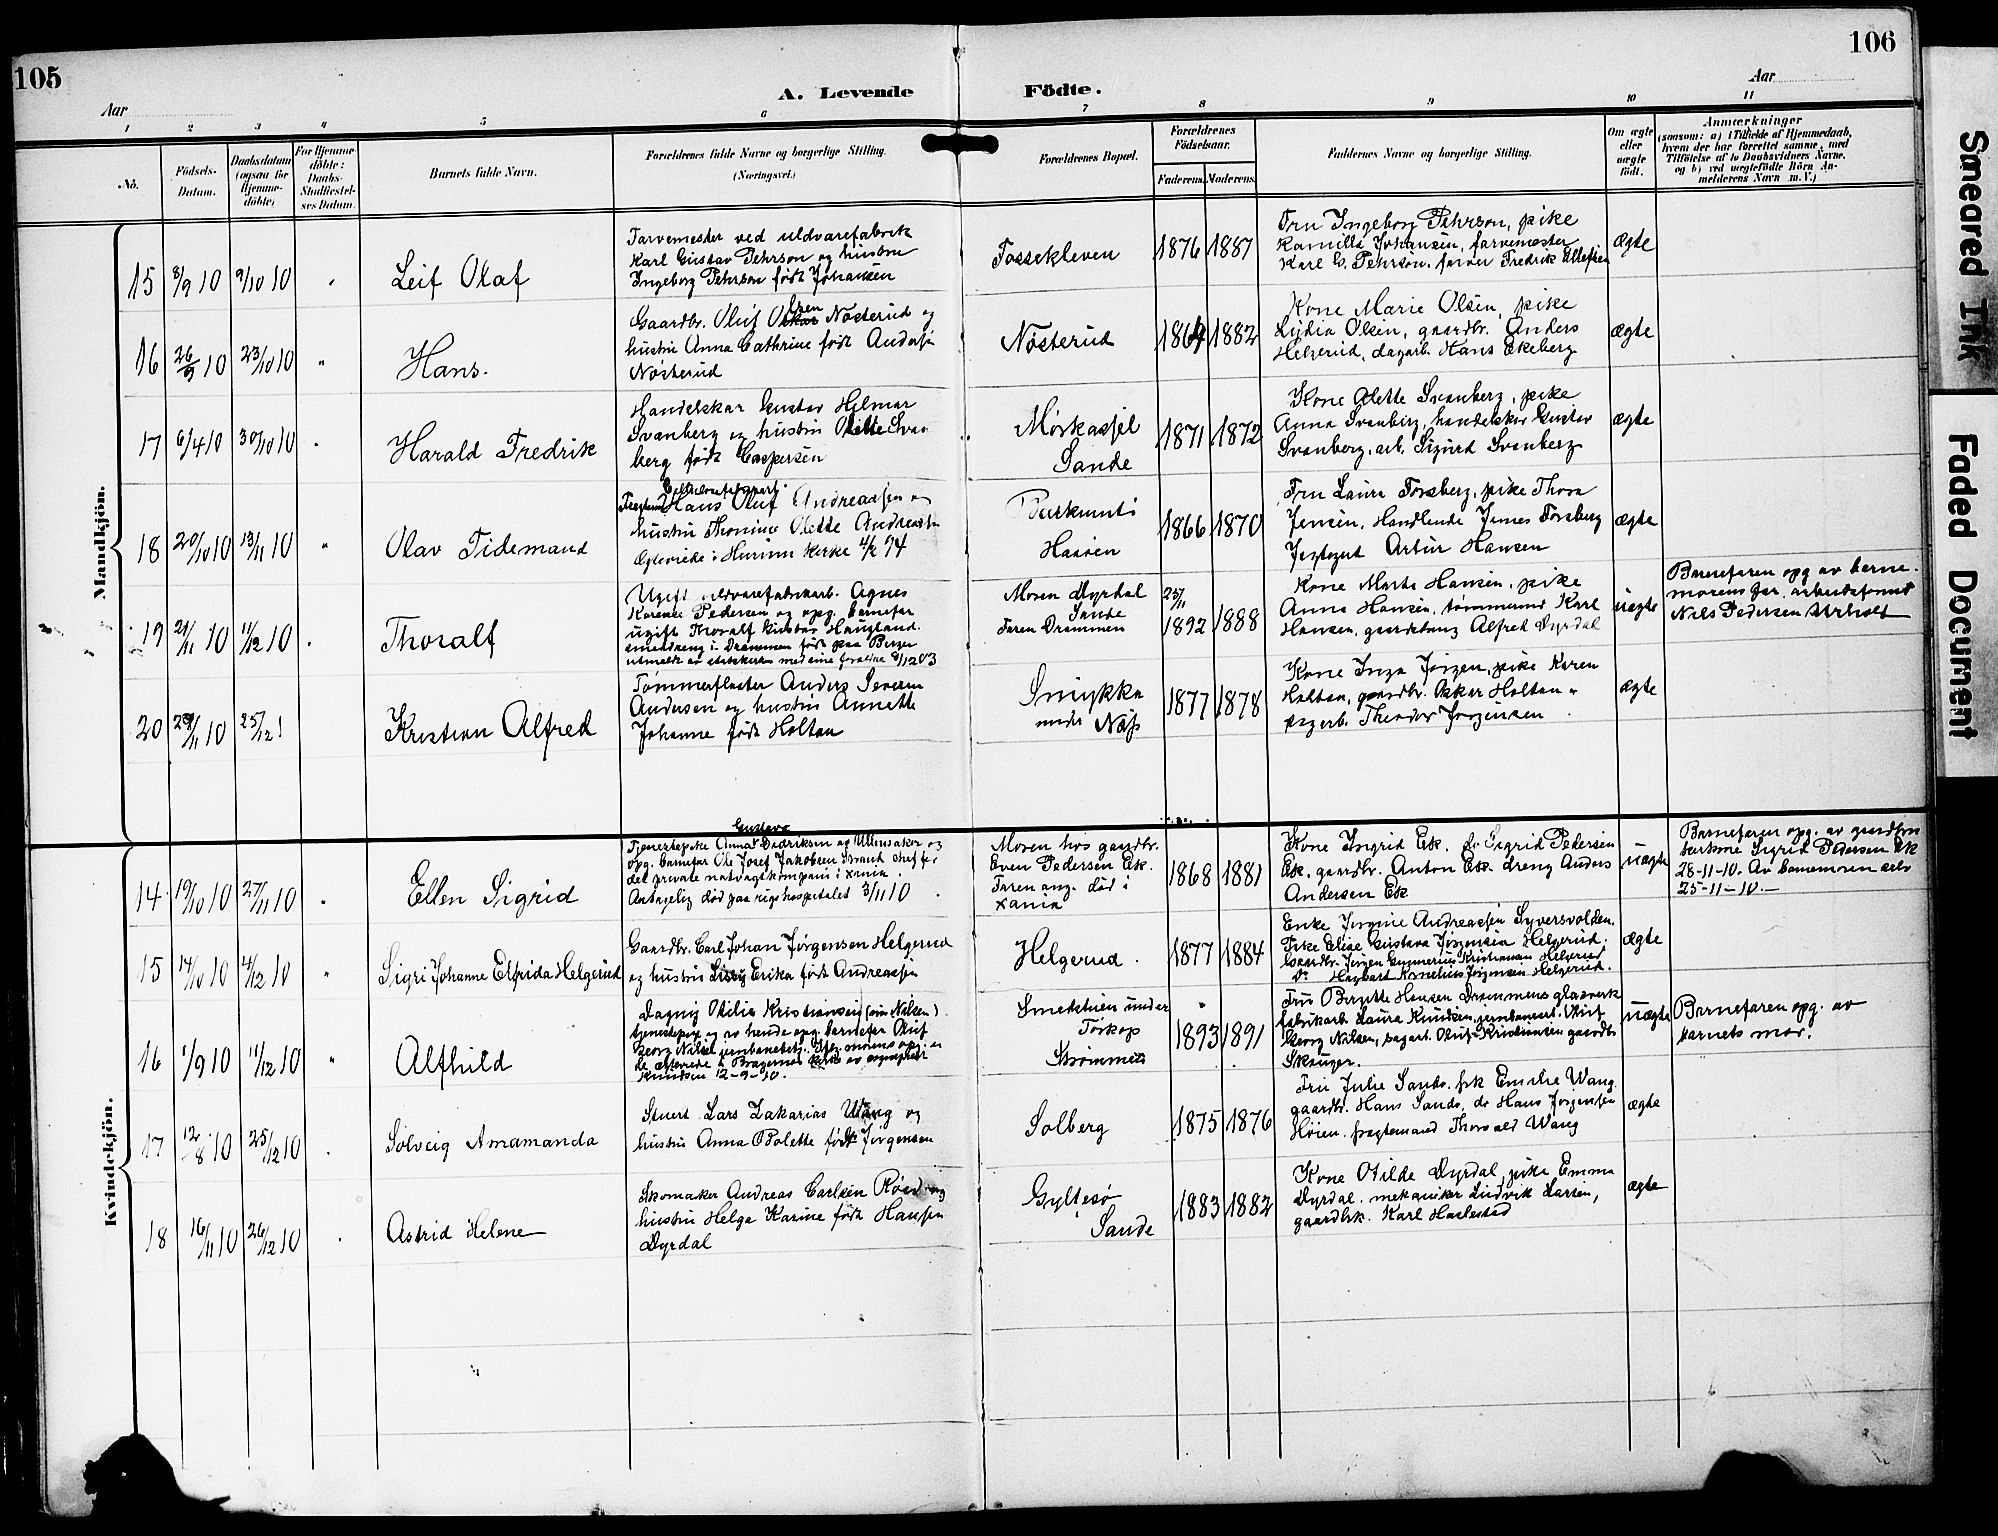 105
106
Aar
A. Levende
Födte.
Aar
1 2 3 4 5 6 7 8 9 10 11
No.
Födsels-
Datum.
Daabsdatum
(ogsaa for
Hjemme-
döbte)
For Hjemme-
döbte:
Daabs-
Stadfæstel-
ses Datum.
Barnets fulde Navn.
Forældrenes fulde Navne og borgerlige Stilling.
(Næringsvei.)
Forældrenes Bopæl.
Forældrenes
Födselsaar.
Faderens.
Moderens.
Faddernes Navne og borgerlige Stilling.
Om ægte
eller
uægte
födt.
Anmærkninger
(saasom: a) i Tilfælde af Hjemmedaab,
hvem der har forrettet samme, med
Tilföielse af to Daabsvidners Navne,
og b) ved uægtefödte Börn An-
melderens Navn m. V.)
Mandkjön.
15 3/9 10 9/10 10 " Leif Olaf
Farvemester ved uldvarefabrik
Karl Gustav Pehrson og hustru
Ingeborg Pehrson født Johansen
Fossekleven
1876 1887
Fru Ingeborg Pehrson, pike
Kamilla Johansen, farvemester
Karl G. Pehrson, farver Fredrik Ellefsen
ægte
16 26/9 10 23/10 10 " Hans.
Gaardbr. Oluf Olsen Nøsterud og
hustru Anna Cathrine født Andersen
Nøsterud
Nøsterud
1864 1882
Kone Marie Olsen, pike
Lydia Olsen, gaardbr. Anders
Helgerud, dagarb. Hans Ekeberg
ægte
17 6/4 10 30/10 10 " Harald Fredrik
Handelskar Gustav Hilmar
Svanberg og hustru Olette Svan
berg født Caspersen
Sande
1871 1872
Kone Olette Svanberg, pike
Anna Svanberg, handelskar Gustav
Svanberg, arb. Sigurd Svanberg
ægte
18 20/10 10 13/11 10 " Olav Tidemand
Hans Oluf Andreassen og
hustru Thomine Olette Andreassen
Ægteviede i Hurum kirke 4/2 94
Haaøen
1866 1870
Fru Laura Forsberg, pike Thora
Jensen, Handlende James Forsberg
Artur Hansen
ægte
19 21/11 10 11/12 10 " Thoralf
Ugift uldvarefabrikarb. Agnes
Karense Pedersen og opg. barnefar
ugift Thoralf Gustav Haugland
i Drammen født paa Berger
utmeldt av statskirken med sine foreldre 8/12 03
Moren Dyrdal
Sande
Faren Drammen
25/11
1892 1888
Kone Marte Hansen, pike
Anna Hansen, tømmermd Karl
Hansen, gaardsdreng Alfred Dyrdal
uægte
Barnefaren opg. av barne-
morens far, arbeidsformd
Nils Pedersen
20 29/11 10 25/12 Kristian Alfred
Tømmerfløter Anders Severin
Andersen og hustru Annette
Johanne født Holtan
Smykka
under Næs
1877 1878
Kone Inga Jørgen, pike Karen
Holtan, gaardbr. Oskar Holtan
Theodor Jørgensen
ægte
Kvindekjön.
14 19/10 10 27/11 10 " Ellen Sigrid
Gustava
Tjenestepike Anna Didriksen av Ullensaker og
opg. barnefar Ole Josef Jakobsen Strand chef for
det private natvagtkompani i Xania.
Antagelig død paa rigshospitalet 3/11 10
Moren hos gaardbr.
Even Pedersen Ek.
Faren ang. død i
Xania
1868 1881
Kone Ingrid Ek. do Sigrid Pedersen
Ek, gaardbr. Anton Ek. dreng Anders
Andersen Ek
uægte
Barnefaren opg. av
Sigrid Pedersen Ek
28-11-10. Av barnemoren selv
25-11-10.
15 14/10 10 4/12 10 " Sigri Johanne Elfrida Helgerud
Gaardbr. Carl Johan Jørgensen Helgerud
og hustru Erika født Andreassen
Helgerud.
1877 1884
Enke Jørgine Andreassen Syversvolden.
Pike Elise Gustava Jørgensen Helgerud.
Gaardbr. Jørgen Gunnerius Kristiansen Helgerud
Do Hagbart Kornelius Jørgensen Helgerud.
ægte
16 1/9 10 11/12 10 " Alfhild
Dagny Otilie Kristiansen (nu Nilsen)
tjenestepige og av hende opg. barnefar Oluf
Georg Nilsen jernbanebetj. Iflg. morens opg. er
de ægteviede i Bragernes kirke av sogneprest
Knudsen 12-9-10.
under
Tørkop
Strømmen
1893 1891
Fru Birgitte Hansen Drammens glasverk
fabrikarb. Laura Knudsen, jernbanebet. Oluf
Georg Nilsen, bagart. Oluf Kristiansen gaardbr.
Skauger.
uægte
Barnefaren opg. av
barnets mor.
17 12/8 10 25/12 10 " Solveig Amamanda
Stuert Lars Zakarias Wang og
hustru Anna Bolette født Jørgensen
Solberg
1875 1876
Fru Julie Sande, frk Emilie Wang.
gaardbr. Hans Sande, do Hans Jørgensen
Høien, fragtemand Thorvald Wang
ægte
18 16/11 10 26/12 10 " Astrid Helene
Skomaker Andreas Carlsen Røed og
hustru Helga Karine født Hansen
Dyrdal
Gyltesø
Sande
1883 1882
Kone Otilde Dyrdal, pike Emma
Dyrdal, mekaniker Ludvik Larsen,
gaardbk. Karl Haslestad
ægte
Smeared Ink
Faded Document